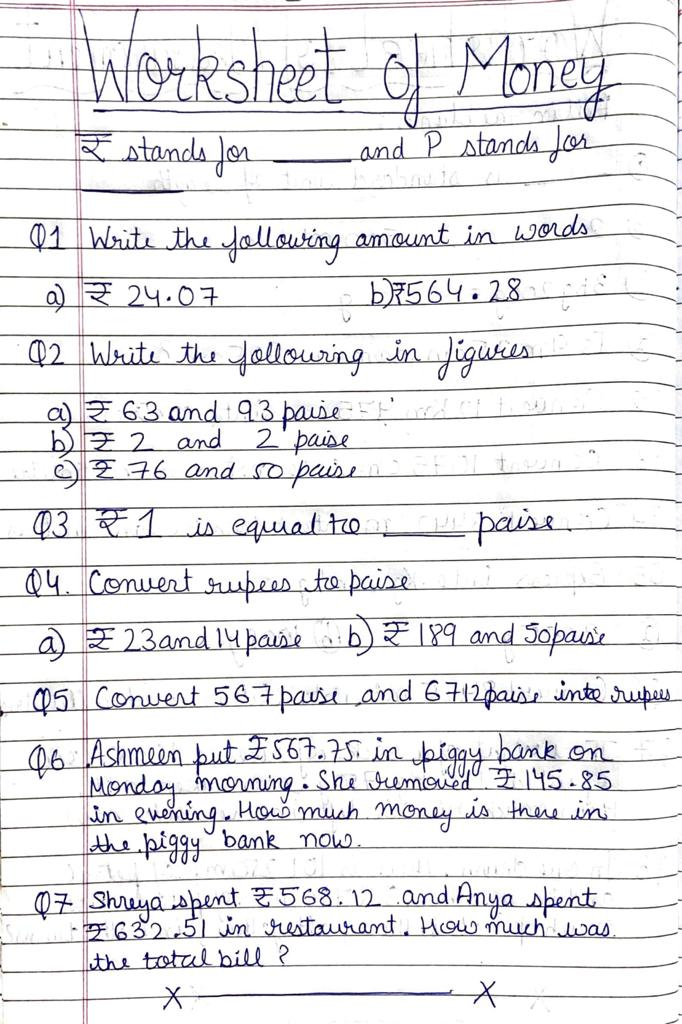 Worksheet of Money
₹ stands for ______ and P stands for
______
Q1 Write the following amount in words
a) ₹ 24.07 b) ₹564.28
Q2 Write the following in figures
a) ₹ 63 and 93 paise
b) ₹ 2 and 2 paise
c) ₹ 76 and 50 paise
Q3 ₹ 1 is equal to ______ paise.
Q4. Convert rupees to paise
a) ₹ 23 and 14 paise b) ₹ 189 and 50 paise
Q5 Convert 567 paise and 6712 paise into rupees
Q6 Ashmeen put ₹567.75. in piggy bank on
Monday morning. She removed ₹ 145.85
in evening. How much money is there in
the piggy bank now.
Q7 Shreya spent ₹568.12 and Anya spent
₹632.51 in restaurant. How much was
the total bill?
X ______ X